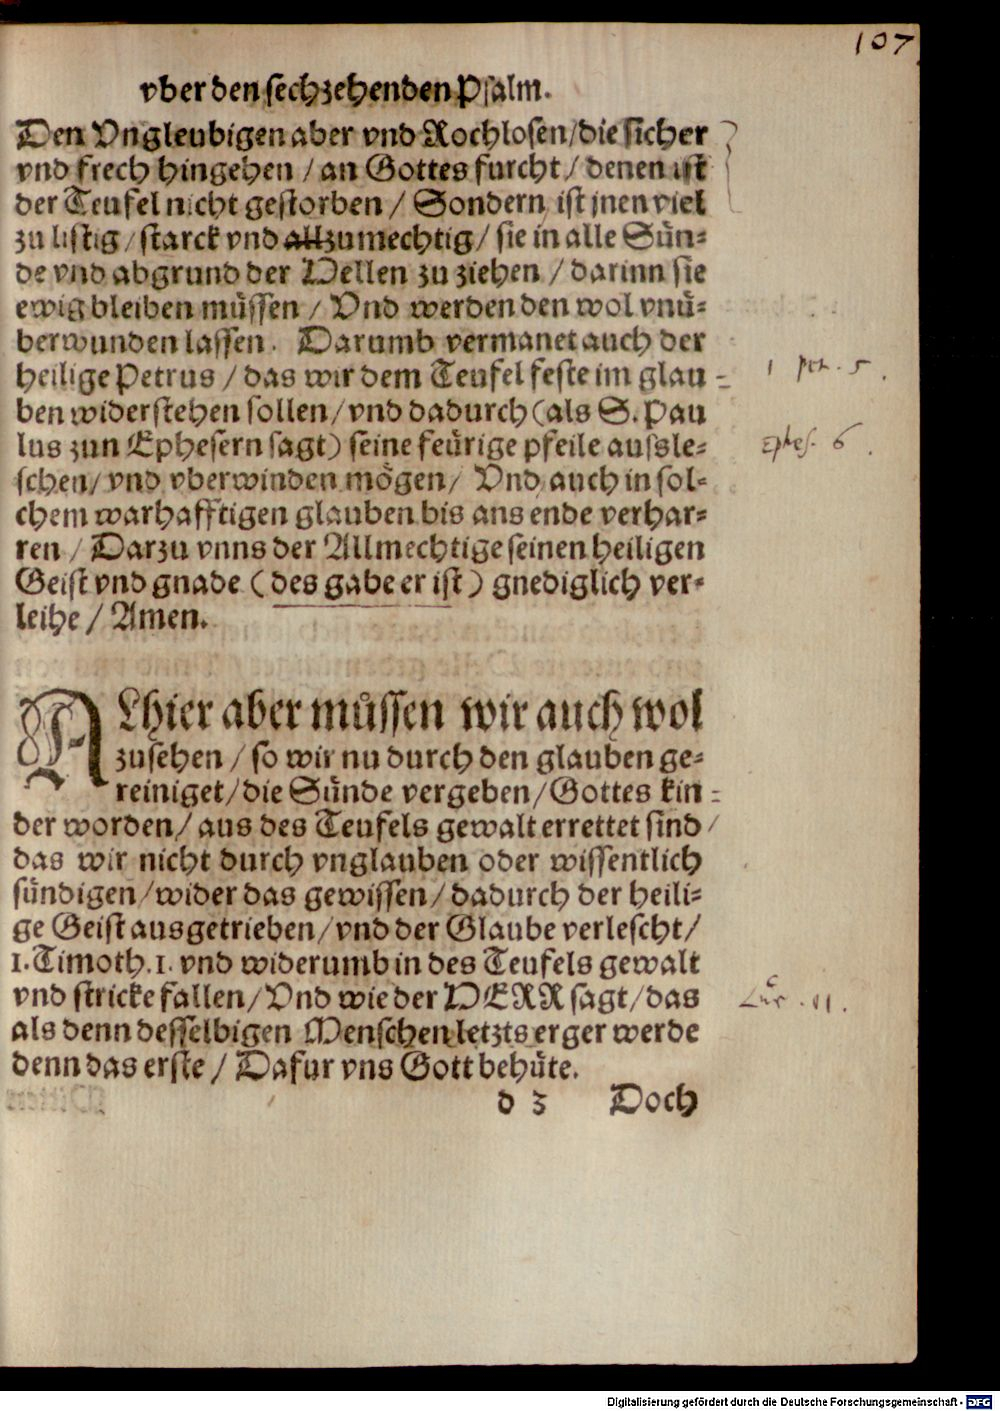 107
vber den sechzehenden Psalm.
Den Vngleubigen aber vnd Rochlosen/die sicher
vnd frech hingehen / an Gottes furcht / denen ist
der Teufel nicht gestorben / Sondern ist jnen viel
zu listig / starck vnd allzumechtig / sie in alle Sün⸗
de vnd abgrund der Hellen zu ziehen / darinn sie
ewig bleiben müssen / Vnd werden den wol vnü⸗
berwunden lassen. Darumb vermanet auch der
heilige Petrus / das wir dem Teufel feste im glau⸗
1 Pet. 5.
ben widerstehen sollen/vnd dadurch (als S. Pau
lus zun Ephesern sagt) seine feürige pfeile aussle⸗
Ephes. 6.
schen/ vnd vberwinden mögen/ Vnd auch in sol⸗
chem warhafftigen glauben bis ans ende verhar⸗
ren / Darzu vnns der Allmechtige seinen heiligen
Geist vnd gnade ( des gabe er ist ) gnediglich ver⸗
leihe / Amen.
ALhier aber müssen wir auch wol
zusehen / so wir nu durch den glauben ge⸗
reiniget/die Sünde vergeben/Gottes kin⸗
der worden/ aus des Teufels gewalt errettet sind/
das wir nicht durch vnglauben oder wissentlich
sündigen/wider das gewissen/dadurch der heili⸗
ge Geist ausgetrieben/vnd der Glaube verlescht/
1.Timoth.1. vnd widerumb in des Teufels gewalt
vnd stricke fallen/Vnd wie der HERR sagt/das
Luc. 11.
als denn desselbigen Menschen letzts erger werde
denn das erste / Dafur vns Gott behüte.
d 3 Doch
Digitalisierung gefördert durch die Deutsche Forschungsgemeinschaft - DFG